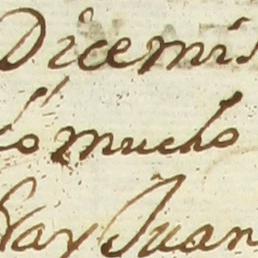 Dicemis
lo mucho
Fray Juan